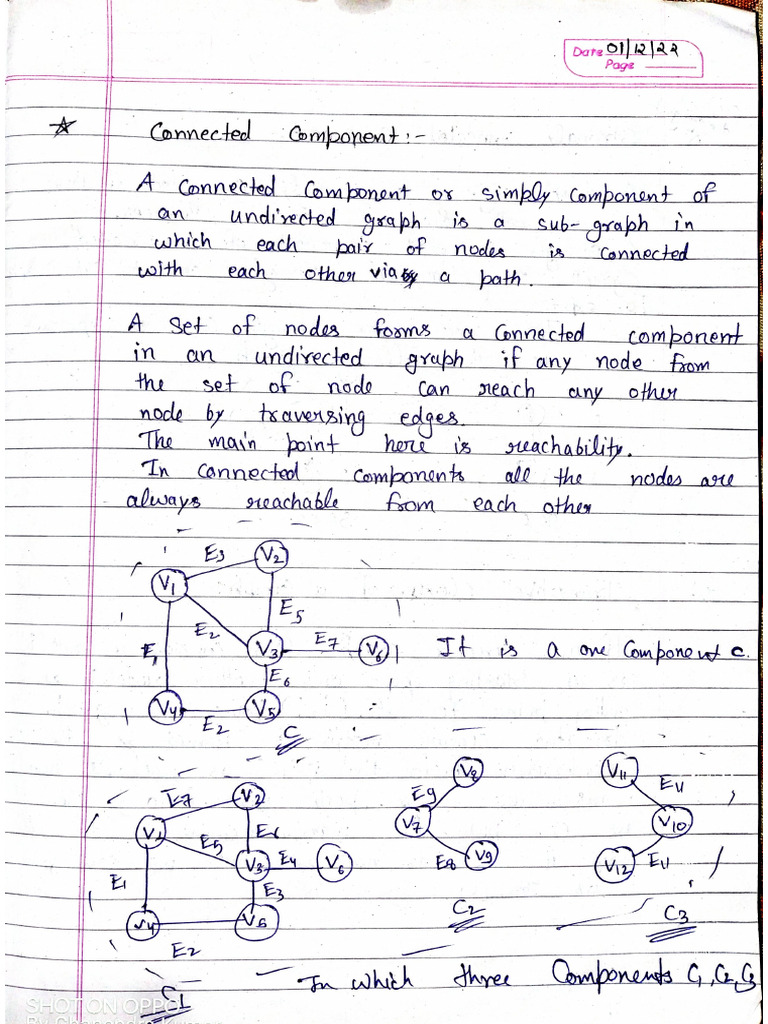 Date 01/12/22
Page
☆ Connected Component:-
A Connected Component or simply component of
an undirected graph is a sub-graph in
which each pair of nodes is connected
with each other via a path.
A set of nodes forms a connected component
in an undirected graph if any node from
the set of node can reach any other
node by traversing edges.
The main point here is reachability.
In connected components all the nodes are
always reachable from each other
E3 V2
V1
E5
E2
E1 V3 E7 V6 It is a one Component C.
E6
V4 V5
E2 C
E7 V2 V8 V11
E9 E11
V1 E6 V7 V10
E5 V3 E4 V6 E8 V9 V12 E11
E1 E3
C2 C3
V4 V5
E2
In which three Components C1, C2, C3
C1
SHOT ON OPPO